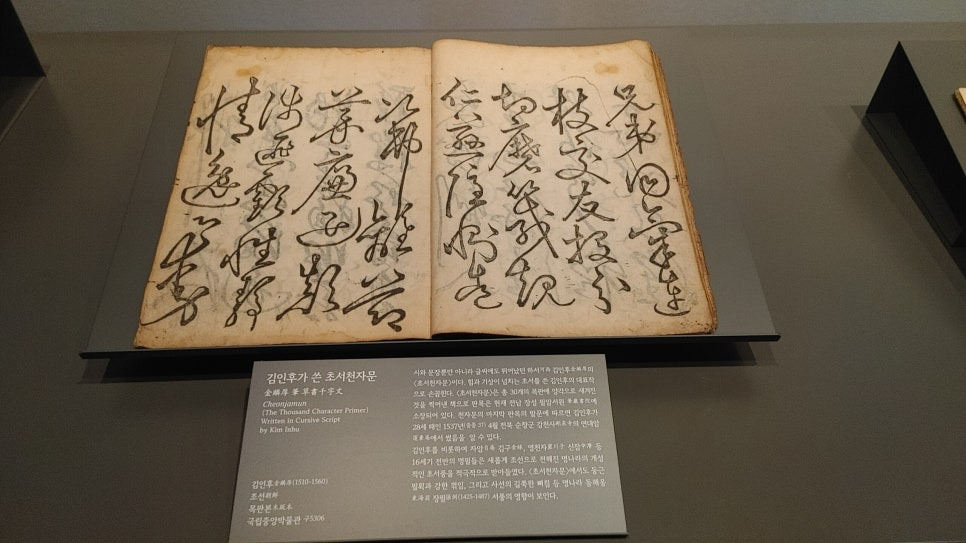 兄弟同氣連
枝交友投分
切磨箴規
仁慈隱惻造
次弗離節
義廉退顚
沛匪虧性靜
情逸心動
김인후가 쓴 초서천자문
金麟厚 筆 草書千字文
Cheonjamun
(The Thousand Character Primer)
Written in Cursive Script
by Kim Inhu
김인후金麟厚(1510-1560)
조선朝鮮
목판본木版本
국립중앙박물관 구5306
시와 문장뿐만 아니라 글씨에도 뛰어났던 하서河西 김인후金麟厚의
〈초서천자문〉이다. 힘과 기상이 넘치는 초서를 쓴 김인후의 대표작
으로 손꼽힌다. 〈초서천자문〉은 총 30개의 목판에 양각으로 새겨진
것을 찍어낸 책으로 판목은 현재 전남 장성 필암서원筆巖書院에
소장되어 있다. 천자문의 마지막 판목의 발문에 따르면 김인후가
28세 때인 1537년(중종 37) 4월 전북 순창군 강천사剛泉寺의 연대암
蓮臺庵에서 썼음을 알 수 있다.
김인후를 비롯하여 자암自庵 김구金絿, 영천자靈川子 신잠申潛 등
16세기 전반의 명필들은 새롭게 조선으로 전해진 명나라의 개성
적인 초서풍을 적극적으로 받아들였다. 〈초서천자문〉에서도 둥근
필획과 강한 꺾임, 그리고 사선의 길쭉한 삐침 등 명나라 동해옹
東海翁 장필張弼(1425-1487) 서풍의 영향이 보인다.